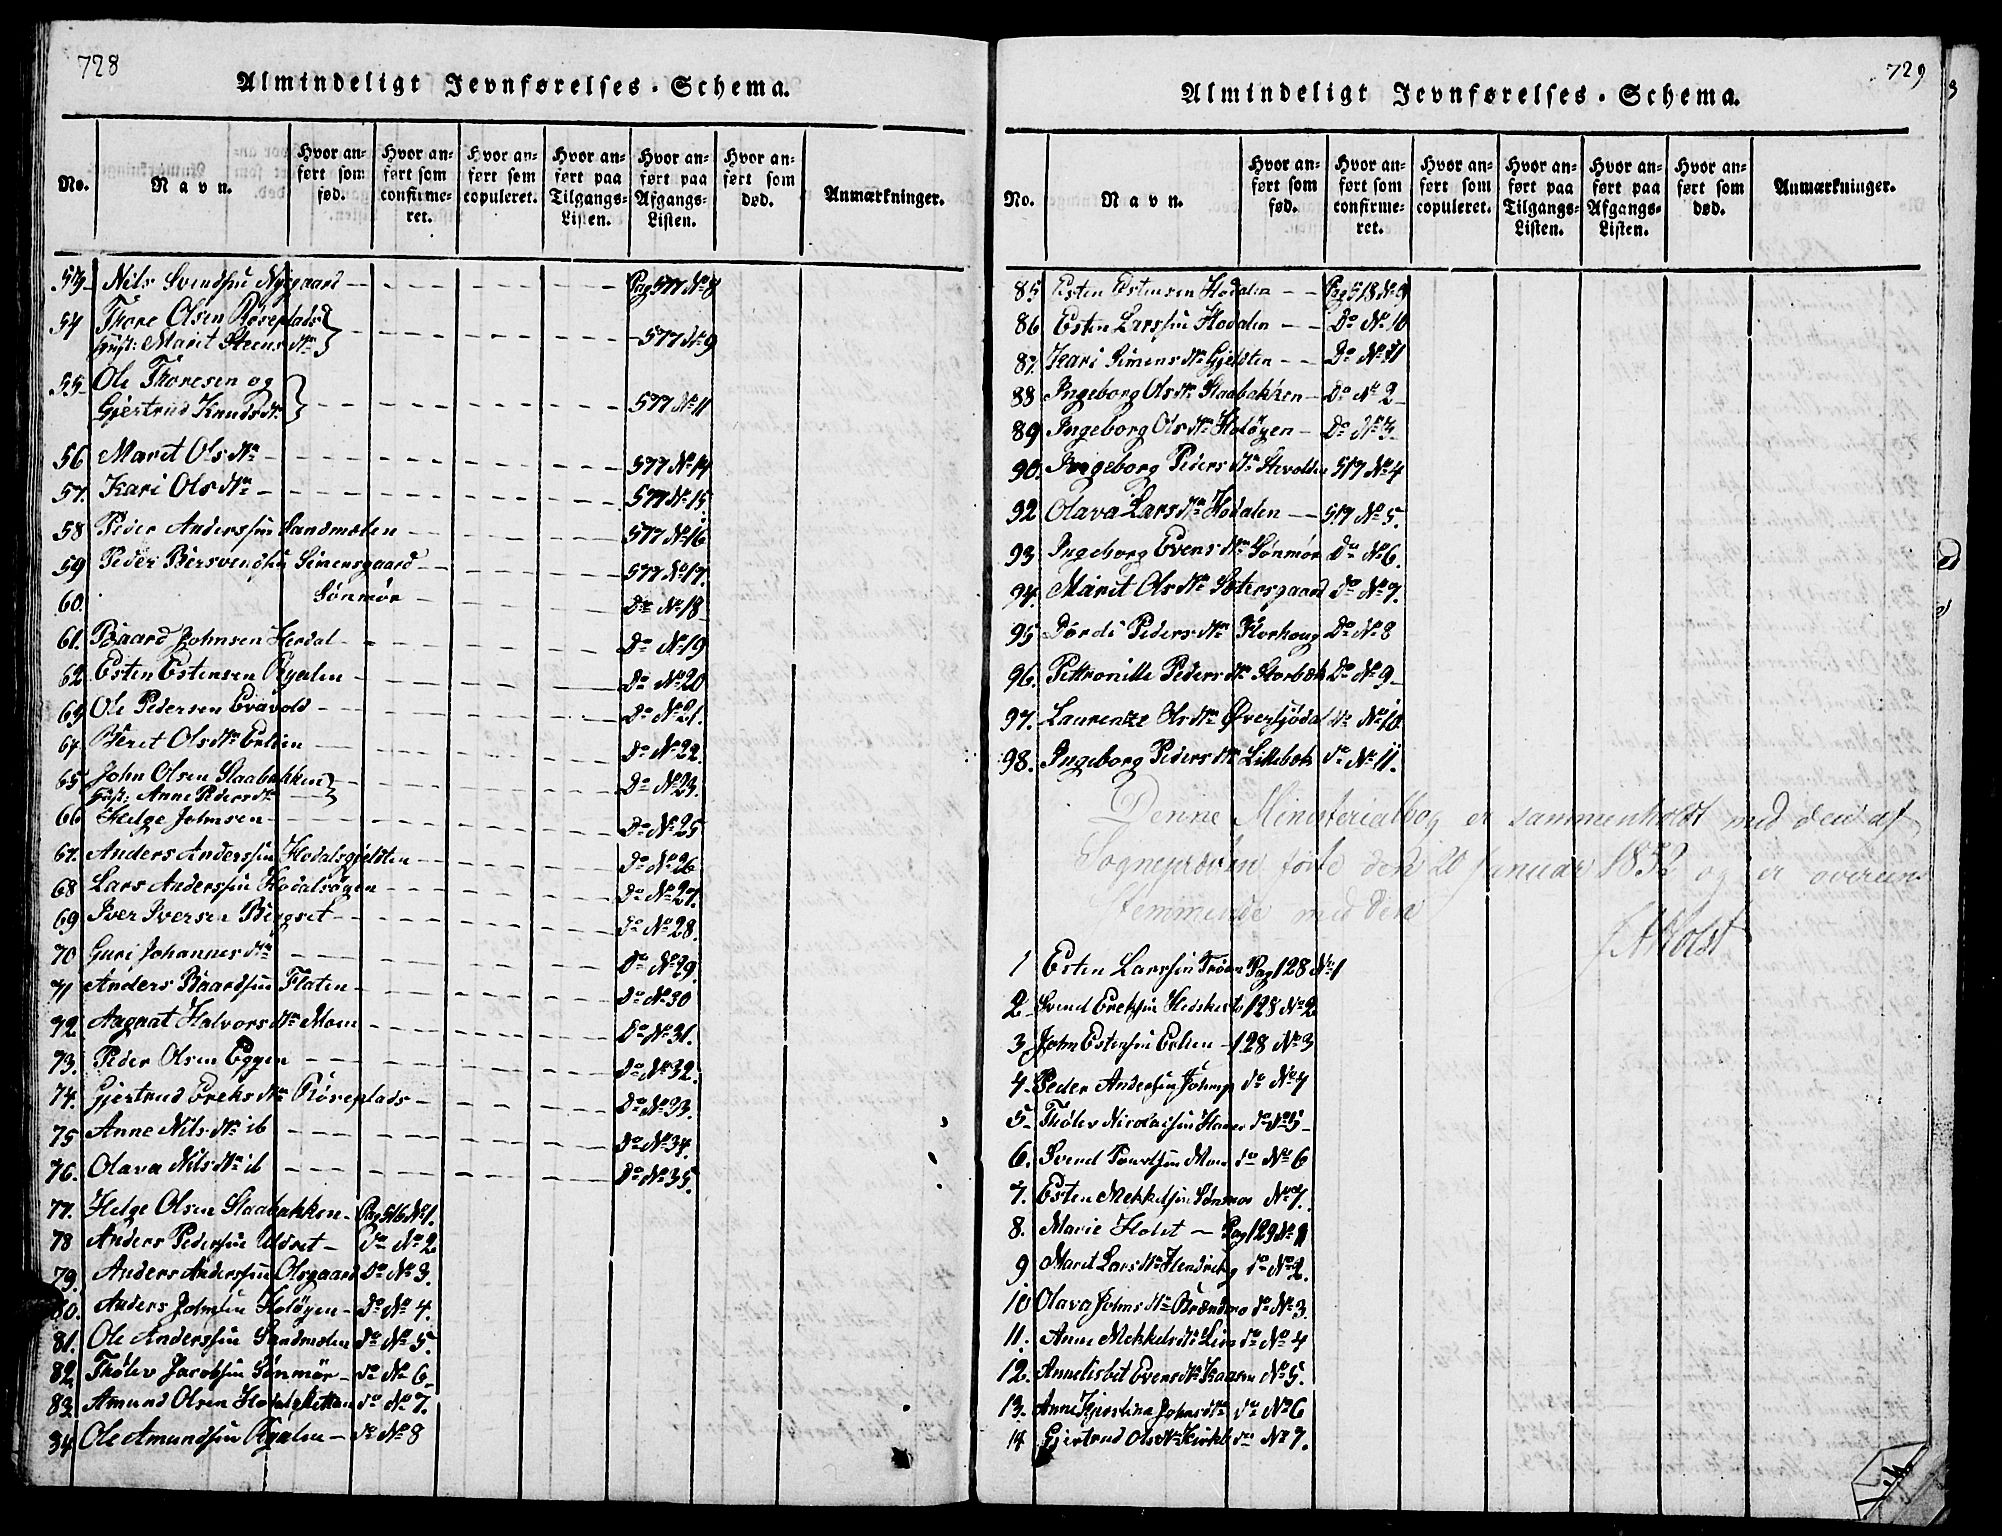 728
Almindeligt Jevnførelses-Schema.
No. Navn. Hvor anført som fød. Hvor anført som confirmeret. Hvor anført som copuleret. Hvor anført paa Tilgangs-Listen. Hvor anført paa Afgangs-Listen. Hvor anført som død. Anmærkninger.
53 Nils Svendsen Nygaard Pag 577 No 8
54 Thore Olsen Røseplads
Hust: Marit Steens Dtr 577 No 9
55 Ole Thoresen og
Gjertrud Knuds Dtr 577 No 11
56 Marit Ols Dtr 577 No 14
57. Kari Ols Dtr 577 No 15
58 Peder Anderssen Sandmælen 577 No 16
59 Peder Bersvendsen Simensgaard 577 No 17.
60. Sønmør Do No 18
61. Baard Johnsen Hodal Do No 19
62 Esten Estensen Øyalen Do No 20
63 Ole Pedersen Evavold Do No 21.
64 Beret Ols Dtr Erlien Do No 22.
65 John Olsen Slaabakken
Hust: Anne Peders Dtr Do No 23.
66 Helge Johnsen Do No 25
67. Anders Anderssen Hodalsgjelten Do No 26
68 Lars Anderssen Hodalsøyen Do No 27.
69 Iver Iversen Bergset Do No 28.
70 Guri Johannes Dtr Do No 29.
71 Anders Baardsen Flaten Do No 30
72 Aagaat Halvors Dtr Moen Do No 31.
73. Peder Olsen Eggen Do No 32.
74. Gjertrud Ereks Dtr Røseplads Do No 33.
75 Anne Nils Dtr ib Do No 34.
76. Olava Nils Dtr ib Do No 35.
77. Helge Olsen Slaabakken Pag 516 No 1.
78 Anders Pedersen Udset Do No 2
79. Anders Anderssen Olsgaard Do No 3.
80. Anders Johnsen Holøyen Do No 4.
81. Ole Anderssen Sandmælen Do No 5.
82 Thølev Jacobsen Sønmør Do No 6
83 Amund Olsen Do No 7.
84 Ole Amundsen Øyalen Do No 8
729
Almindeligt Jevnførelses-Schema.
No. Navn. Hvor anført som fød. Hvor anført som confirmeret. Hvor anført som copuleret. Hvor anført paa Tilgangs-Listen. Hvor anført paa Afgangs-Listen. Hvor anført som død. Anmærkninger.
85 Esten Estensen Hodalen Pag 518 No 9
86 Esten Larssen Hodalen Do No 10
87. Kari Simens Dtr Gjelten Do No 11
88 Ingeborg Ols Dtr Slaabakken Do No 2
89 Ingeborg Ols Dtr Holøyen Do No 3.
90. Ingeborg Peders Dtr 517 No 4
92 Olava Lars Dtr Hodalen 517 No 5.
93 Ingeborg Evens Dtr Sønmør Do No 6.
94. Marit Ols Dtr Sætersgaard Do No 7.
95 Dordi Peders Dtr Horhoug Do No 8
96. Pettronille Peders Dtr Storbæk Do No 9
97. Laurentze Ols Dtr Øversjødal Do No 10
98. Ingeborg Peders Dtr Lillebæk Do No 11.
Denne Ministerialbog er sammenholdt med den af
Sognepræsten førte den 20 Januar 1852 og er overeens
stemmende med den
Holst
1 Esten Larssen Trøen Pag 128 No 1
2 Svend Ereksen 128 No 2
3 John Estensen Erlien 128 No 3
4. Peder Andersen Do No 4
5 Thølev Nicolaisen Do No 5
6. Svend Do No 6
7. Esten Mekkelsen Sønmør No 7.
8. Marie Holst Pag 129 No 1
9 Marit Lars Dtr Do No 2.
10 Olava Johns Dtr Brændmo Do No 3.
11. Anne Mekkels Dtr Do No 4
12. Annelisbet Evens Dtr No 5.
13. Anne Kjerstina Johns Dtr Do No 6
14 Gjertrud Ols Dtr Do No 7.